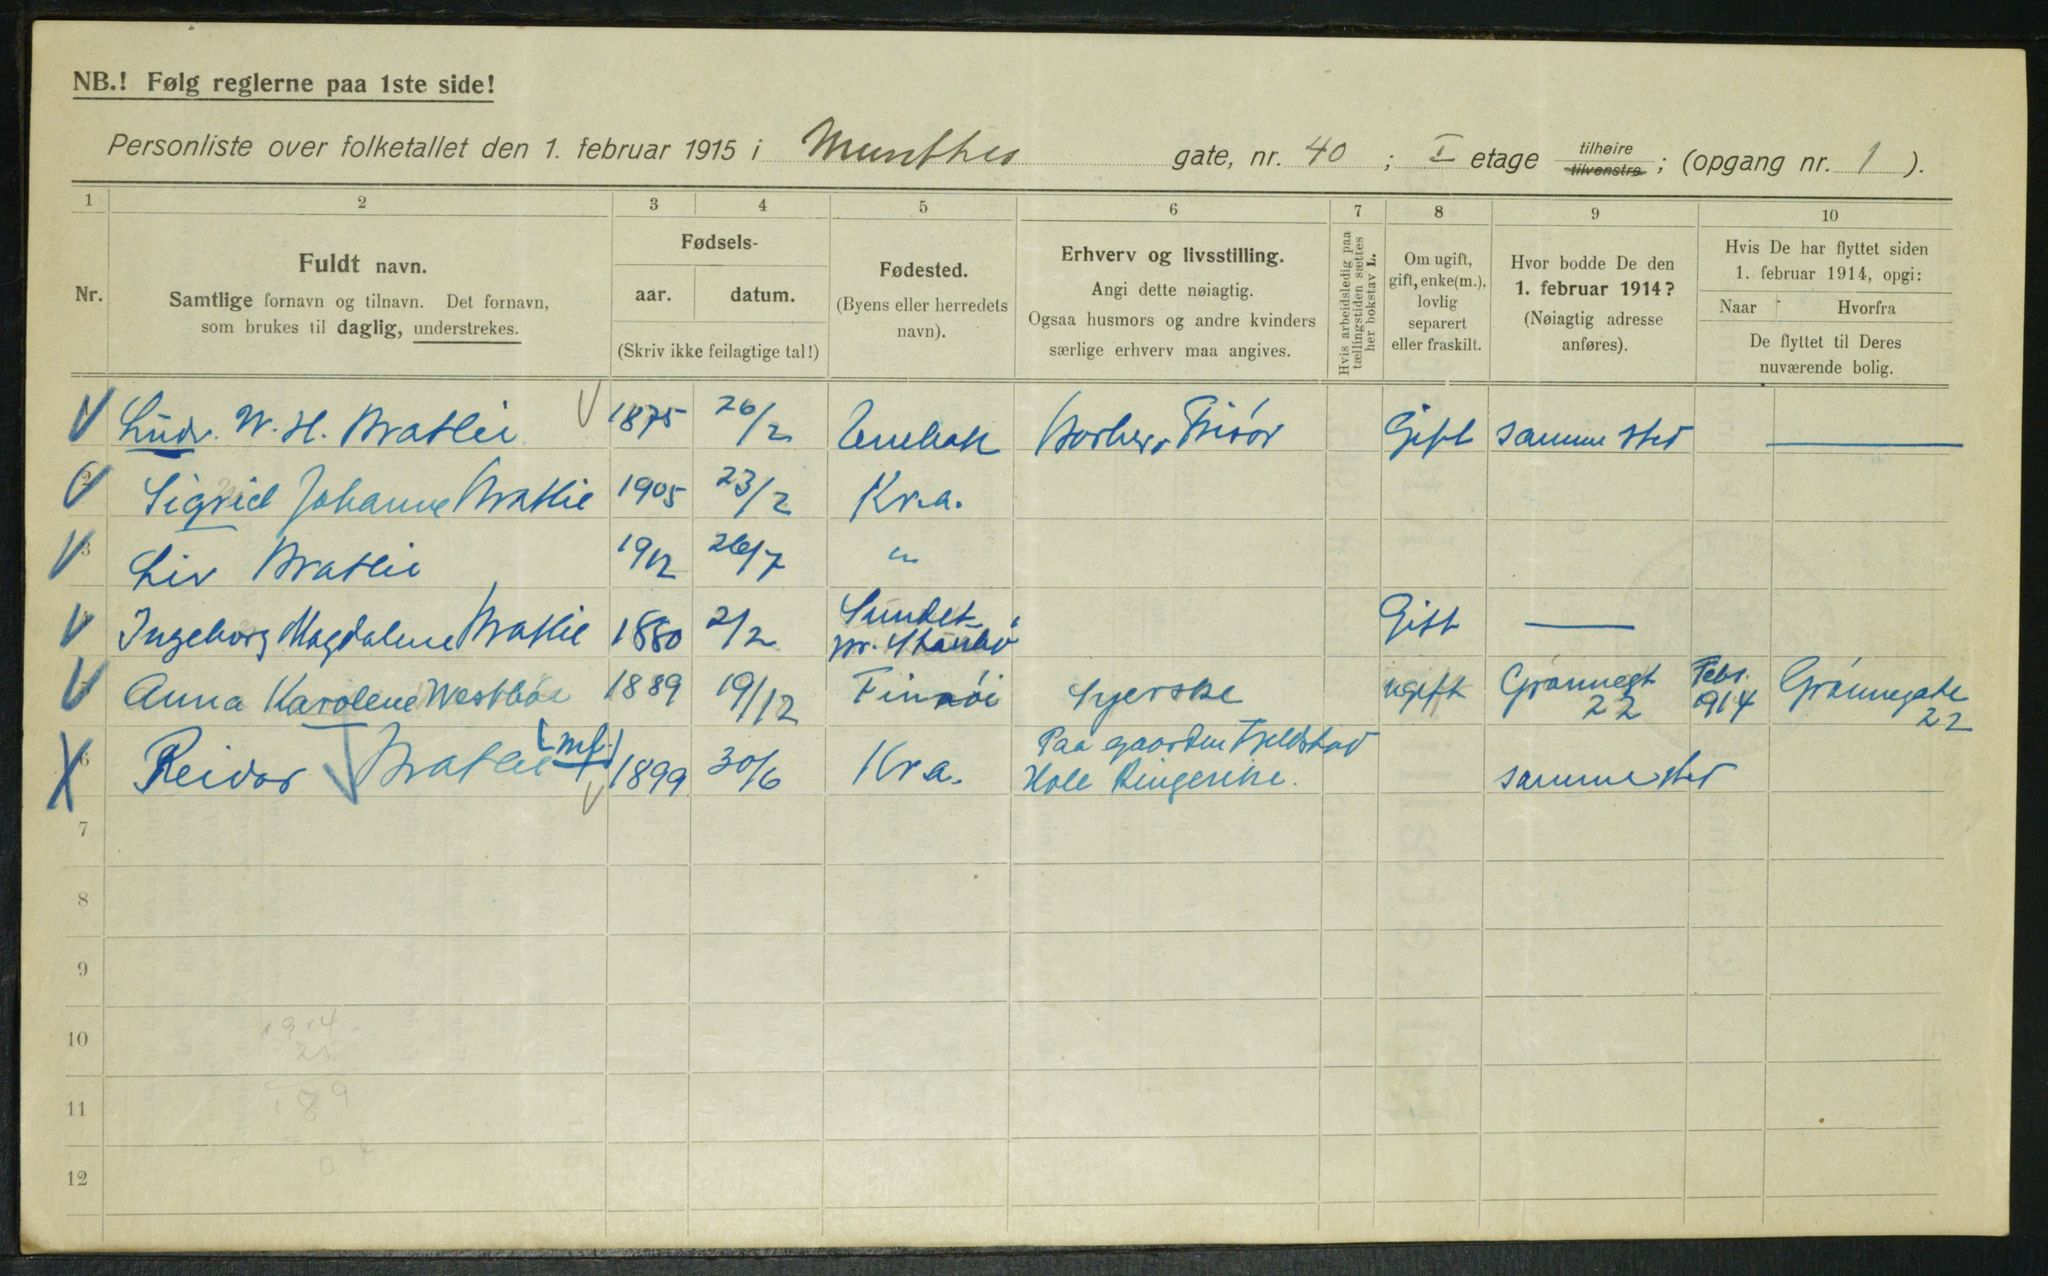 NB.! Følg reglerne paa 1ste side!
Personliste over folketallet den 1. februar 1915 i Munthes gate, nr. 40 ; I etage tilhøire tilvenstre ; (opgang nr. 1 ).
1 2 3 4 5 6 7 8 9 10
Nr.
Fuldt navn.
Samtlige fornavn og tilnavn. Det fornavn,
som brukes til daglig, understrekes.
Fødsels-
aar. datum.
(Skriv ikke feilagtige tal!)
Fødested.
(Byens eller herredets
navn).
Erhverv og livsstilling.
Angi dette nøiagtig.
Ogsaa husmors og andre kvinders
særlige erhverv maa angives.
Hvis arbeidsledig paa
tællingstiden sættes
her bokstav L.
Om ugift,
gift, enke(m.),
lovlig
separert
eller fraskilt.
Hvor bodde De den
1. februar 1914?
(Nøiagtig adresse
anføres).
Hvis De har flyttet siden
1. februar 1914, opgi:
Naar Hvorfra
De flyttet til Deres
nuværende bolig.
Ludv. W. H. Bratlie 1875 26/2 Enebak Barber, Frisør Gift samme sted
2 Sigrid Johanne Bratlie 1905 23/2 Kr.a.
3 Liv Bratlie 1912 26/7 "
Ingeborg Magdalene Bratlie 1880 2/2 Sundet Gift —
Anna Karolene 1889 19/12 Finnöi Syerske ugift Grønnegt 22 Febr. 914 Grønnegate 22
6 Reidar Bratlie (mf.) 1899 30/6 Kr.a. Paa gaarden Fjeldstad
Hole Ringerike. samme sted
7
8
9
10
11
12
1914
25
189